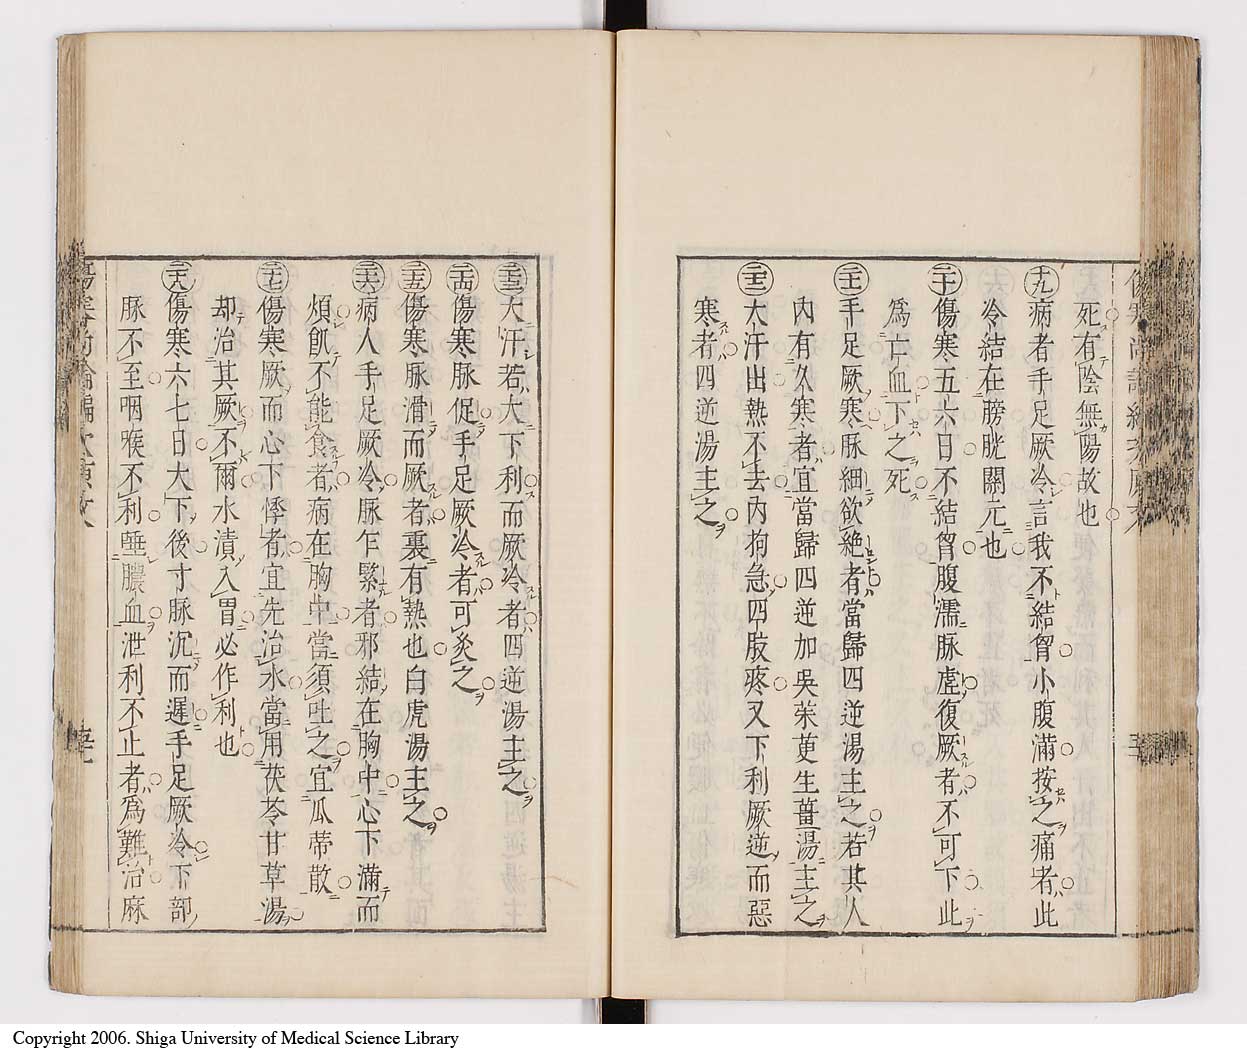 死有陰無陽故也
十九 病者手足厥冷言我不結胷小腹滿按之痛者此
冷結在膀胱關元也
二十 傷寒五六日不結胷腹濡脉虛復厥者不可下此
爲亡血下之死
二十一 手足厥寒脉細欲絶者當歸四逆湯主之若其人
内有久寒者宜當歸四逆加吳茱萸生薑湯主之
二十二 大汗出熱不去内狗急四肢疼又下利厥逆而惡
寒者四逆湯主之
二十三 大汗若大下利而厥冷者四逆湯主之
二十四 傷寒脉促手足厥冷者可灸之
二十五 傷寒脉滑而厥者裏有熱也白虎湯主之
二十六 病人手足厥冷脉乍緊者邪結在胸中心下滿而
煩飢不能食者病在胸中當須吐之宜瓜蒂散
二十七 傷寒厥而心下悸者宜先治水當用茯苓甘草湯
却治其厥不爾水漬入胃必作利也
二十八 傷寒六七日大下後寸脉沉而遲手足厥冷下部
脉不至咽喉不利唾膿血泄利不止者爲難治麻
Copyright 2006. Shiga University of Medical Science Library